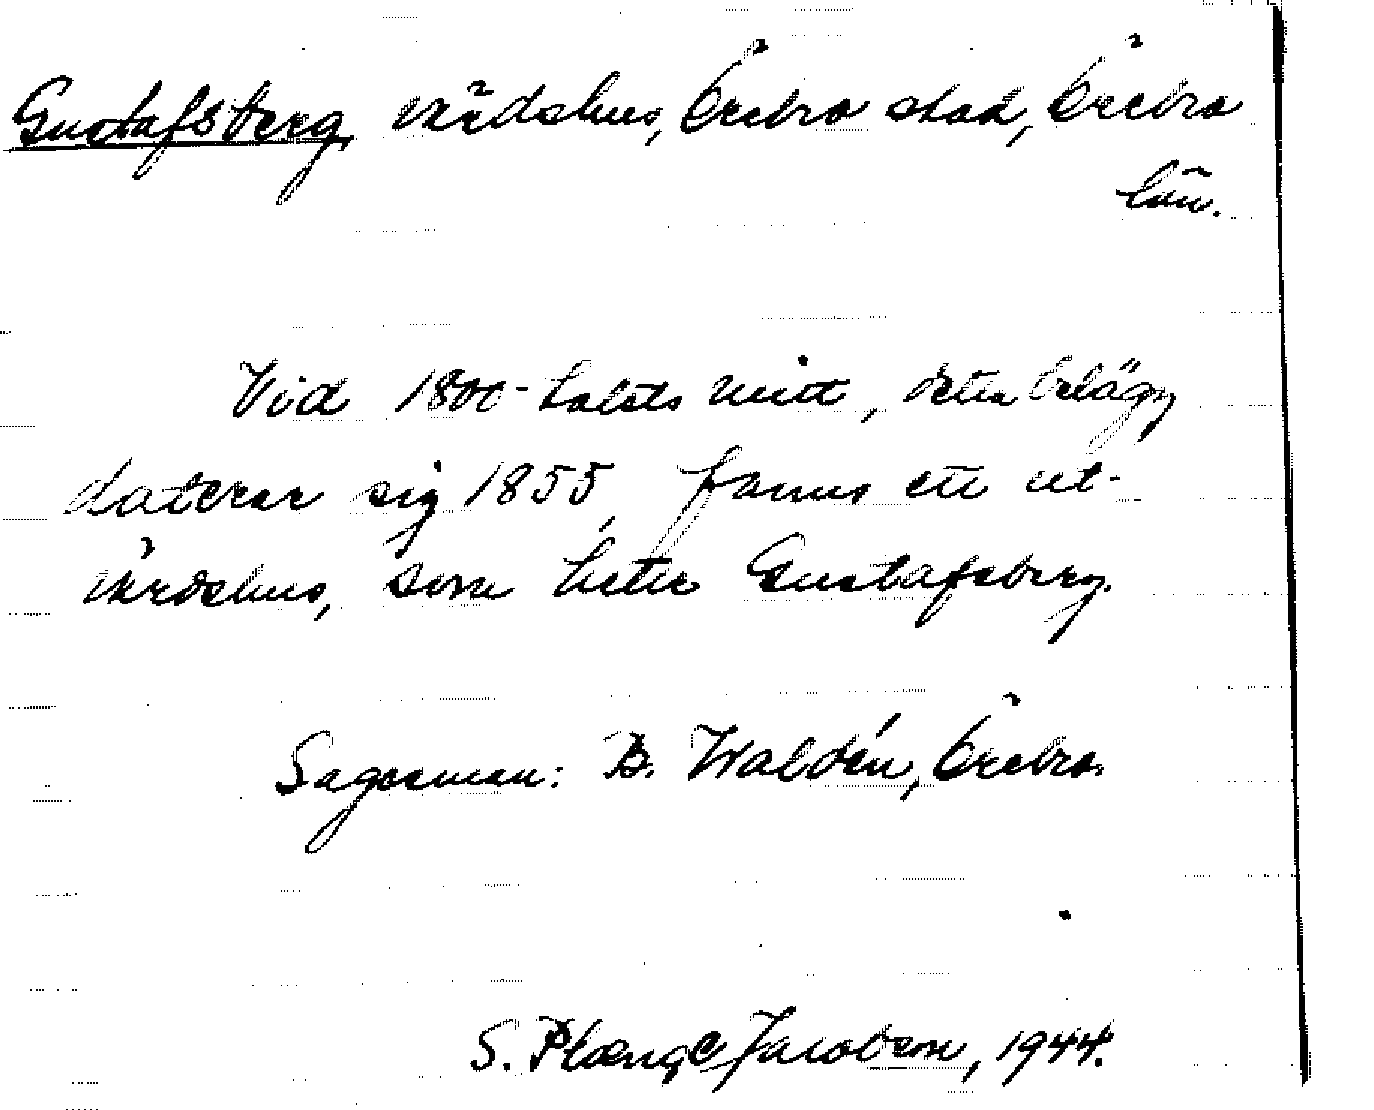 Gustafsberg, värdshus, Örebro stad, Örebro
län.
Vid 1800-talets mitt, detta belägg
daterar sig 1855, fanns ett ut-
värdshus, som heter Gustafsberg.
Sagesman: B. Waldén, Örebro.
S. Plænge Jacobson, 1944.